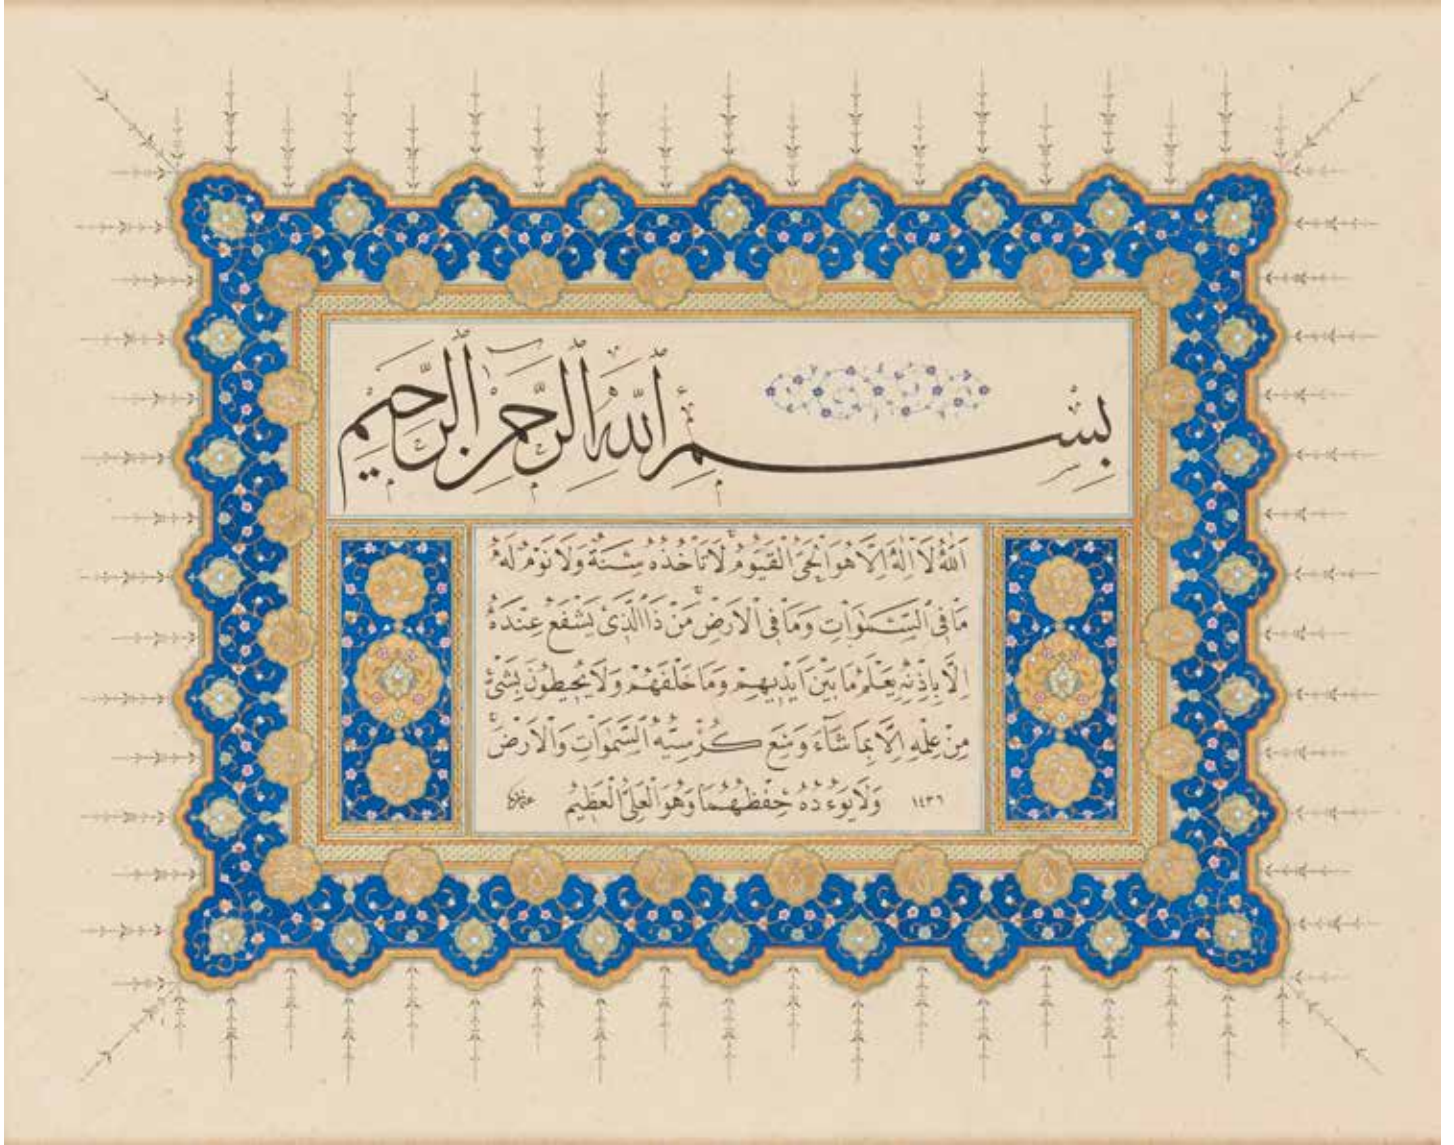 بِسْمِ ٱللَّهِ ٱلرَّحْمٰنِ ٱلرَّحِيمِ
اَللّٰهُ لَا اِلٰهَ اِلَّا هُوَ الْحَيُّ الْقَيُّومُ لَا تَأْخُذُهُ سِنَةٌ وَلَا نَوْمٌ لَهُ
مَا فِي السَّمٰوَاتِ وَمَا فِي الْاَرْضِ مَنْ ذَا الَّذِي يَشْفَعُ عِنْدَهُ
اِلَّا بِاِذْنِهِ يَعْلَمُ مَا بَيْنَ اَيْدِيهِمْ وَمَا خَلْفَهُمْ وَلَا يُحِيطُونَ بِشَيْءٍ
مِنْ عِلْمِهِ اِلَّا بِمَا شَاءَ وَسِعَ كُرْسِيُّهُ السَّمٰوَاتِ وَالْاَرْضَ
١٤٣٦ وَلَا يَؤُدُهُ حِفْظُهُمَا وَهُوَ الْعَلِيُّ الْعَظِيمُ